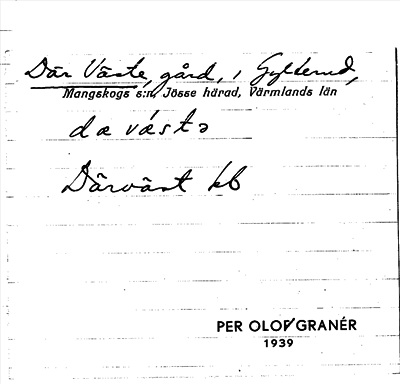 Där Väste, gård, i Gylterud,
Mangskogs s:n, Jösse härad, Värmlands län
dæ væ̀stə
Därväst kb
PER OLOF GRANÉR
1939